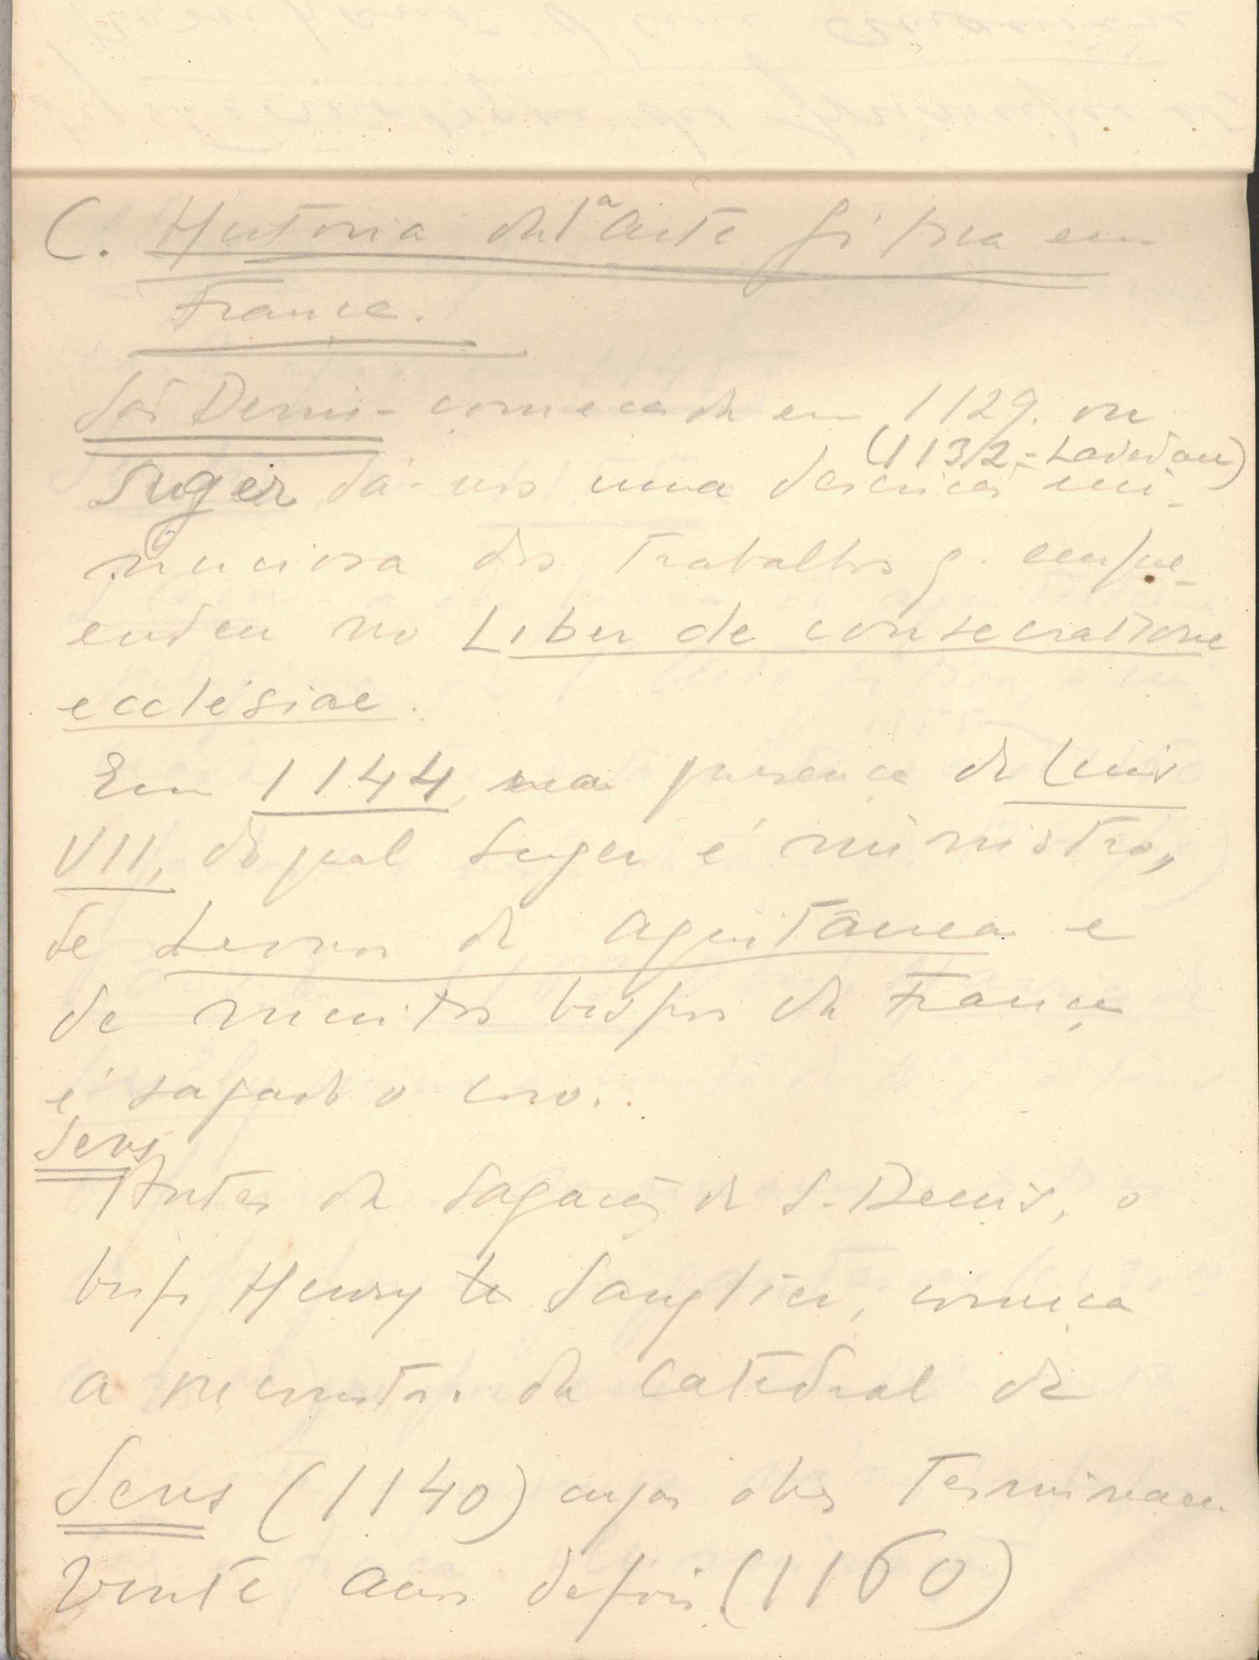 C. Historia da 1ª Arte Gótica em
França.
São Denis - começada em 1129. ou
(1132 - Lavedan)
Suger dá-nos uma descrição mi-
nuciosa dos trabalhos q. empre-
endeu no Liber de consecratione
ecclésiae.
Em 1144, na presença de Luis
VII, do qual Suger é ministro,
de Leonor de Aquitânea e
de muitos bispos da França
é sagrado o coro.
Sens
Antes da sagração de S. Denis, o
bispo Henry le Sanglier, começa
a reconstr. da Catedral de
Sens (1140) cujas obras terminam
vinte anos depois (1160)